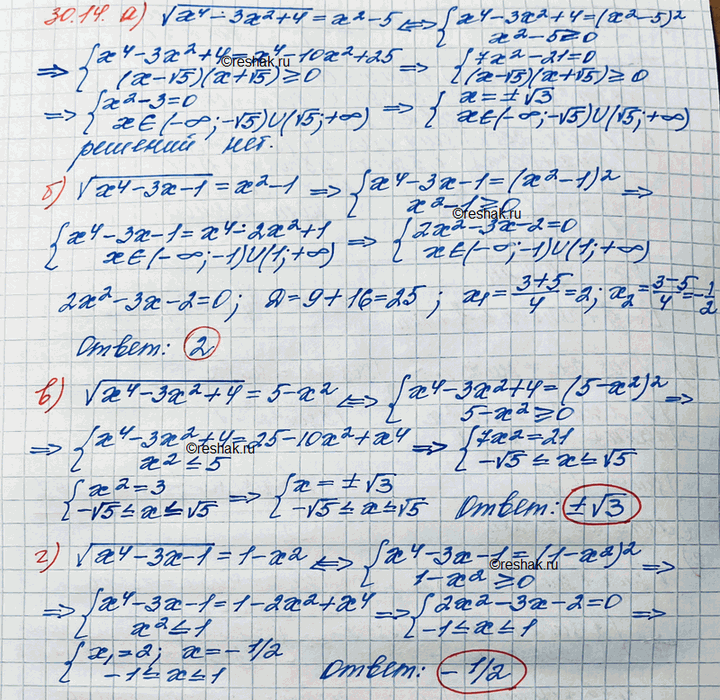 30.14. а) √(x⁴-3x²+4) = x²-5 ⟺ { x⁴-3x²+4=(x²-5)²
x²-5≥0
⇒ { x⁴-3x²+4=x⁴-10x²+25 ⇒ { 7x²-21=0
(x-√5)(x+√5)≥0 (x-√5)(x+√5)≥0
⇒ { x²-3=0 ⇒ { x=±√3
x∈(-∞;-√5)∪(√5;+∞) x∈(-∞;-√5)∪(√5;+∞)
решений нет.
б) √(x⁴-3x-1) = x²-1 ⇒ { x⁴-3x-1=(x²-1)² ⇒
x²-1≥0
{ x⁴-3x-1=x⁴-2x²+1 ⇒ { 2x²-3x-2=0
x∈(-∞;-1)∪(1;+∞) x∈(-∞;-1)∪(1;+∞)
2x²-3x-2=0; D=9+16=25; x₁=(3+5)/4=2; x₂=(3-5)/4=-1/2
Ответ: 2
в) √(x⁴-3x²+4) = 5-x² ⟺ { x⁴-3x²+4=(5-x²)² ⇒
5-x²≥0
⇒ { x⁴-3x²+4=25-10x²+x⁴ ⇒ { 7x²=21
x²≤5 -√5≤x≤√5
{ x²=3 ⇒ { x=±√3
-√5≤x≤√5 -√5≤x≤√5 Ответ: ±√3
г) √(x⁴-3x-1) = 1-x² ⟺ { x⁴-3x-1=(1-x²)² ⇒
1-x²≥0
⇒ { x⁴-3x-1=1-2x²+x⁴ ⇒ { 2x²-3x-2=0 ⇒
x²≤1 -1≤x≤1
{ x₁=2; x=-1/2
-1≤x≤1 Ответ: -1/2
©reshak.ru
©reshak.ru
©reshak.ru
©reshak.ru